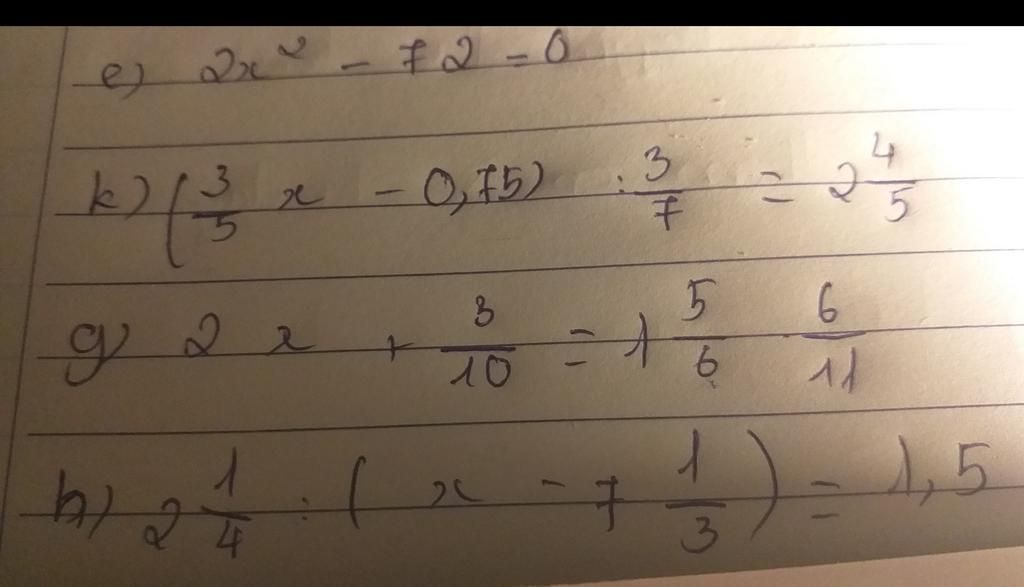 e) 2x² - 72 = 0
k) (3/5 x - 0,75) : 3/7 = 2 4/5
g) 2x + 3/10 = 1 5/6 6/11
h) 2 1/4 : (x - 7 1/3) = 1,5